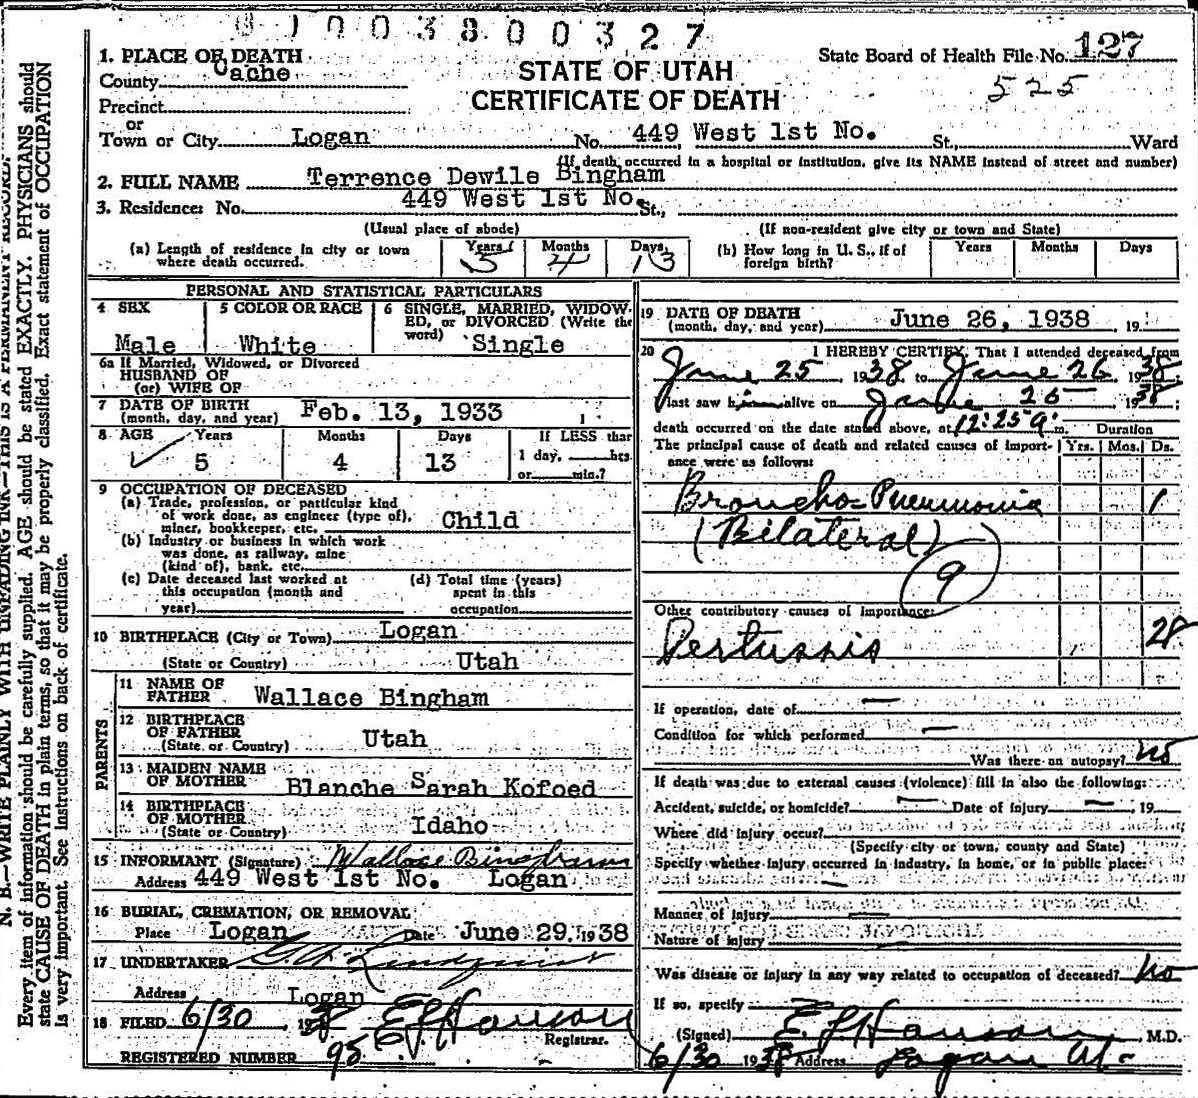 N. B.—WRITE PLAINLY WITH UNFADING INK—THIS IS A PERMANENT RECORD.
Every item of information should be carefully supplied. AGE should be stated EXACTLY. PHYSICIANS should
state CAUSE OF DEATH in plain terms, so that it may be properly classified. Exact statement of OCCUPATION
is very important. See instructions on back of certificate.
3800327
1. PLACE OF DEATH
County Cache
Precinct
or
Town or City Logan No. 449 West 1st No. St., Ward
State Board of Health File No. 127
525
STATE OF UTAH
CERTIFICATE OF DEATH
(If death occurred in a hospital or institution, give its NAME instead of street and number)
2. FULL NAME Terrence Dewile Bingham
3. Residence: No. 449 West 1st No. St.,
(Usual place of abode) (If non-resident give city or town and State)
(a) Length of residence in city or town where death occurred. Years 5 Months 4 Days 13
(b) How long in U. S., if of foreign birth? Years Months Days
PERSONAL AND STATISTICAL PARTICULARS
4 SEX Male
5 COLOR OR RACE White
6 SINGLE, MARRIED, WIDOWED, or DIVORCED (Write the word) Single
6a If Married, Widowed, or Divorced
HUSBAND OF
(or) WIFE OF
7 DATE OF BIRTH
(month, day, and year) Feb. 13, 1933
8 AGE Years 5 Months 4 Days 13 If LESS than
1 day, hrs.
or min.?
9 OCCUPATION OF DECEASED
(a) Trade, profession, or particular kind
of work done, as engineer (type of),
miner, bookkeeper, etc. Child
(b) Industry or business in which work
was done, as railway, mine
(kind of), bank, etc.
(c) Date deceased last worked at
this occupation (month and
year)
(d) Total time (years)
spent in this
occupation
10 BIRTHPLACE (City or Town) Logan
(State or Country) Utah
PARENTS
11 NAME OF
FATHER Wallace Bingham
12 BIRTHPLACE
OF FATHER
(State or Country) Utah
13 MAIDEN NAME
OF MOTHER Blanche Sarah Kofoed
14 BIRTHPLACE
OF MOTHER
(State or Country) Idaho
15 INFORMANT (Signature) Wallace Bingham
Address 449 West 1st No. Logan
16 BURIAL, CREMATION, OR REMOVAL
Place Logan Date June 29, 1938
17 UNDERTAKER Lindquist
Address Logan
18 FILED 6/30 1938 E L Hanson
Registrar.
REGISTERED NUMBER 95
19 DATE OF DEATH
(month, day, and year) June 26, 1938, 19
20 I HEREBY CERTIFY, That I attended deceased from
June 25, 1938, to June 26, 1938
I last saw him alive on June 25 1938;
death occurred on the date stated above, at 12:25 a. m. Duration
The principal cause of death and related causes of importance were as follows: Yrs. Mos. Ds.
Broncho-Pneumonia 1
(Bilateral)
9
Other contributory causes of importance:
Pertussis 28
If operation, date of —
Condition for which performed —
Was there an autopsy? no
If death was due to external causes (violence) fill in also the following:
Accident, suicide, or homicide? — Date of injury — 19
Where did injury occur?
(Specify city or town, county and State)
Specify whether injury occurred in industry, in home, or in public place:
—
Manner of injury —
Nature of injury
Was disease or injury in any way related to occupation of deceased? No
If so, specify —
(Signed) E L Hanson, M.D.
6/30 1938 Address Logan Ut-